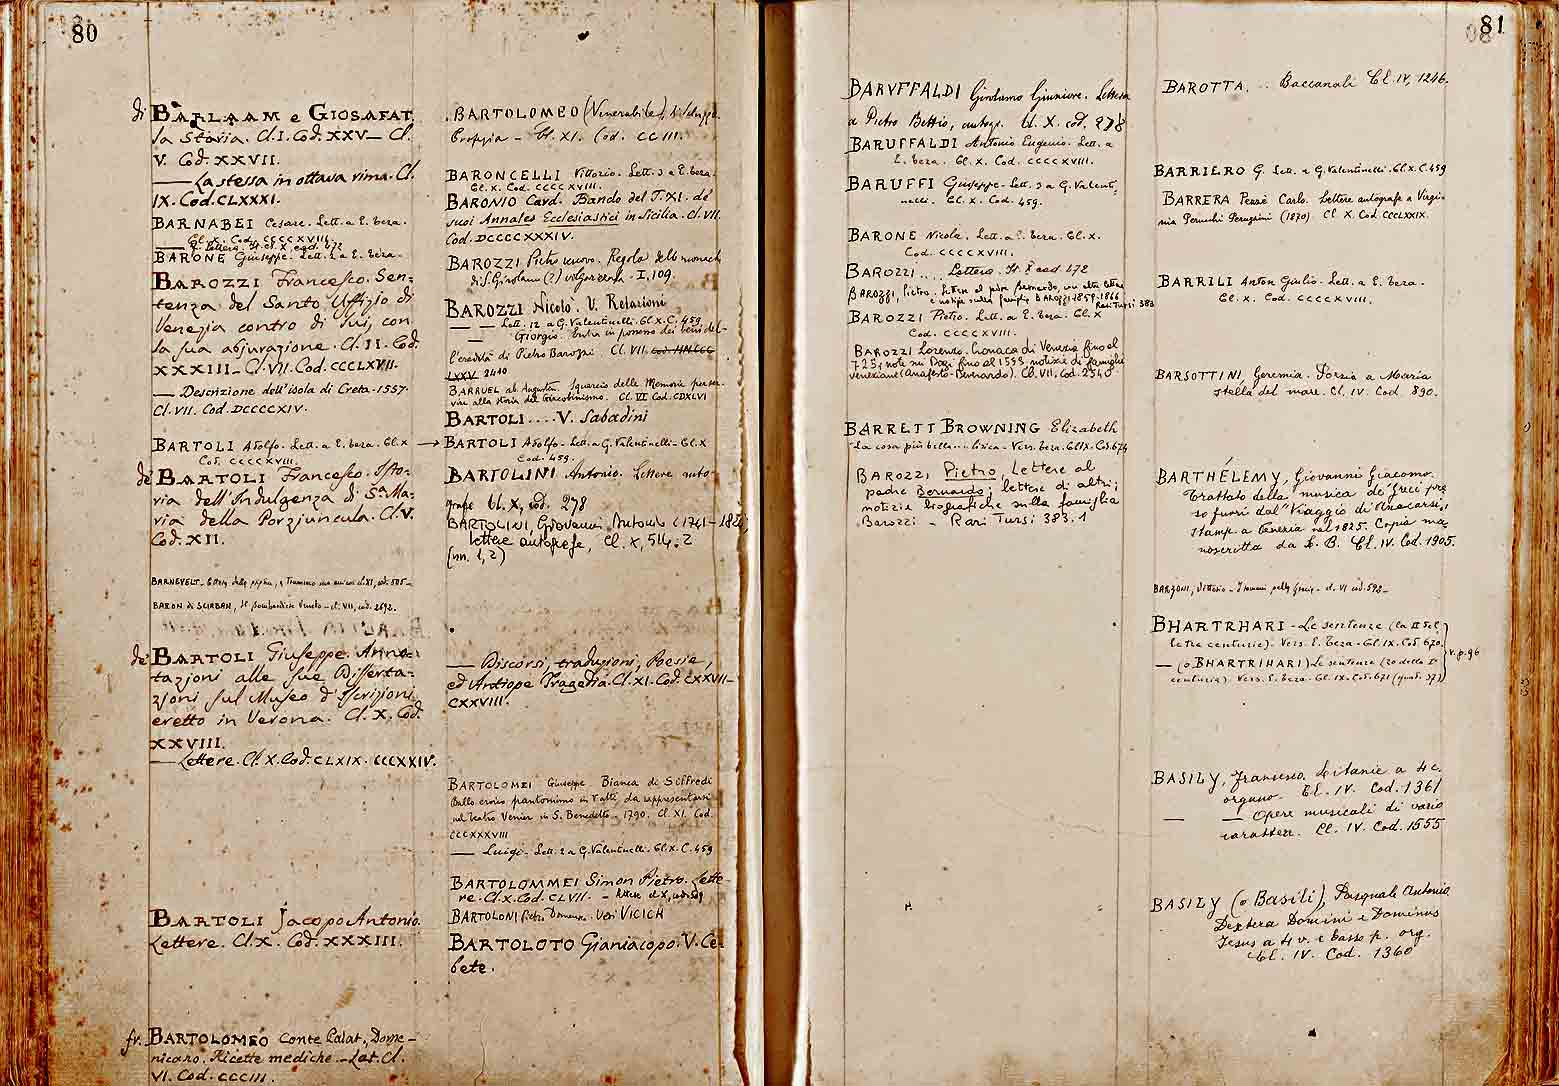 80
di BARLAAM e GIOSAFAT.
la Storia. Cl. I. Cod. XXV — Cl.
V. Cod. XXVII.
— La stessa in ottava rima. Cl.
IX. Cod. CLXXXI.
BARNABEI Cesare. Lett. a E. Teza.
Cl. X. Cod. CCCCXVIII.
— Lettera. It. Cl. X. cod. 472
BARONE Giuseppe. Lett. 2 a E. Teza.
BAROZZI Francesco. Sen-
tenza del Santo Uffizio di
Venezia contro di lui, con
la sua abjurazione. Cl. II. Cod.
XXXIII — Cl. VII. Cod. CCCLXVII.
— Descrizione dell'isola di Creta. 1577.
Cl. VII. Cod. DCCCCXIV.
BARTOLI Adolfo. Lett. a E. Teza. Cl. X
Cod. CCCCXVIII.
de BARTOLI Francesco. Isto-
ria dell'Indulgenza di Sta Ma-
ria della Porziuncula. Cl. V.
Cod. XII.
BARNEVELT
cl. XI, cod. 505 —
BARON di
It. Bombardiere Veneto — cl. VII, cod. 2692.
de BARTOLI Giuseppe. Anno-
tazioni alle sue Disserta-
zioni sul Museo d'Iscrizioni
eretto in Verona. Cl. X. Cod.
XXVIII.
— Lettere. Cl. X. Cod. CLXIX. CCCXXIV.
BARTOLI Jacopo Antonio.
Lettere. Cl. X. Cod. XXXIII.
fr. BARTOLOMEO Conte Palat., Dome-
nicano. Ricette mediche. — Lat. Cl.
VI. Cod. CCCIII.
BARTOLOMEO (Venerabile),
Cl. XI. Cod. CCIII.
BARONCELLI Vittorio. Lett. 3 a E. Teza.
Cl. X. Cod. CCCCXVIII.
BARONIO Card. Bando del T. XI. de'
suoi Annales Ecclesiastici in Sicilia. Cl. VII.
Cod. DCCCCXXXIV.
BAROZZI Pietro
di S. Girolamo (?) volgarizzata. I, 109.
BAROZZI Nicolò. V. Relazioni
— — Lett. 12 a G. Valentinelli. Cl. X. C. 459
— Giorgio. Entra in possesso dei beni del-
l'eredità di Pietro Barozzi. Cl. VII. Cod. MMCCC
LXXV 2410
BARRUEL ab. Augustin. Squarcio delle Memorie per ser-
vire alla storia del Giacobinismo. Cl. VI Cod. CDXLVI
BARTOLI.... V. Sabadini
→ BARTOLI Adolfo — Lett. a G. Valentinelli — Cl. X
Cod. 459.
BARTOLINI Antonio. Lettere auto-
grafe Cl. X, cod. 278
BARTOLINI, Giovanni Antonio (1741 — 1824)
lettere autografe, Cl. X, 514: 2
(nn. 1, 2)
— Discorsi, traduzioni, Poesie,
ed Antiope Tragedia. Cl. XI. Cod. CXXVII —
CXXVIII.
BARTOLOMEI Giuseppe Bianca di Siffredi
Ballo eroico pantomimo in 5 atti da rappresentarsi
nel teatro Venier in S. Benedetto — 1790. Cl. XI. Cod.
CCCXXXVIII
— Luigi — Lett. 2 a G. Valentinelli. Cl. X. C. 459
BARTOLOMMEI Simon Pietro. Lette-
re. Cl. X. Cod. CLVII. — lettere cl. X, cod. 509
BARTOLONI Pietro Domenico. Vedi VICICH
BARTOLOTO Gianiacopo. V. Ce-
bete.
81
BARUFFALDI Girolamo Giuniore. Lettera
a Pietro Bettio, autogr. Cl. X. cod. 278
BARUFFALDI Antonio Eugenio. Lett. a
E. Teza. Cl. X. Cod. CCCCXVIII.
BARUFFI Giuseppe — Lett. 3 a G. Valenti-
nelli. Cl. X. Cod. 459.
BARONE Nicola. Lett. a E. Teza. Cl. X.
Cod. CCCCXVIII.
BAROZZI ... Lettera. It. X cod. 472
BAROZZI, Pietro. Lettere al padre Bernardo, un altra lettera
e notizie sulla famiglia BAROZZI. 1859-1866
Rari Tursi 383
BAROZZI Pietro. Lett. a E. Teza. Cl. X
Cod. CCCCXVIII.
BAROZZI Lorenzo. Cronaca di Venezia fino al
725, note sui Dogi fino al 1555, notizie di famiglie
veneziane (Anafesto-Bernardo). Cl. VII, Cod. 2540
BARRETT BROWNING Elizabeth
La cosa più bella... lirica — Vers. Teza. Cl. IX. Cod. 674
BAROZZI Pietro, Lettere al
padre Bernardo; lettere di altri;
notizie biografiche sulla famiglia
Barozzi — Rari Tursi 383.1
BAROTTA. .. Baccanali Cl. IV, 1246.
BARRIERO G. Lett. a G. Valentinelli. Cl. X. C. 459
BARRERA Pezzi Carlo. Lettere autografe a Virgi-
nia Perucchi Perugini (1870) Cl X. Cod. CCCLXXIX.
BARRILI Anton Giulio. Lett. a E. Teza.
Cl. X. Cod. CCCCXVIII.
BARSOTTINI, Geremia. Poesia a Maria
stella del mare. Cl. IV. Cod. 890.
BARTHÉLEMY, Giovanni Giacomo.
Trattato della musica de' Greci pre-
so fuori dal "Viaggio di Anacarsi",
stamp. a Venezia nel 1825. Copia ma-
noscritta da L. B. Cl. IV. Cod. 1905.
BARZONI, Vittorio — I romani nella Grecia — cl. VI cod. 593 —
BHARTRHARI — Le sentenze (la II e
le tre centurie). Vers. E. Teza — Cl. IX. Cod. 670.
— (o BHARTRIHARI) Le sentenze (20 della I
centuria). Vers. E. Teza. Cl. IX. Cod. 671 (quad. 37)
v. p. 96
BASILY, Francesco. Litanie a 4 c.
organo. Cl. IV. Cod. 1361
— — Opere musicali di vario
carattere. Cl. IV. Cod. 1555
BASILY (o Basili), Pasquale Antonio
Dextera Domini e Dominus
Jesus a 4 v. e basso p. org.
Cl. IV. Cod. 1360